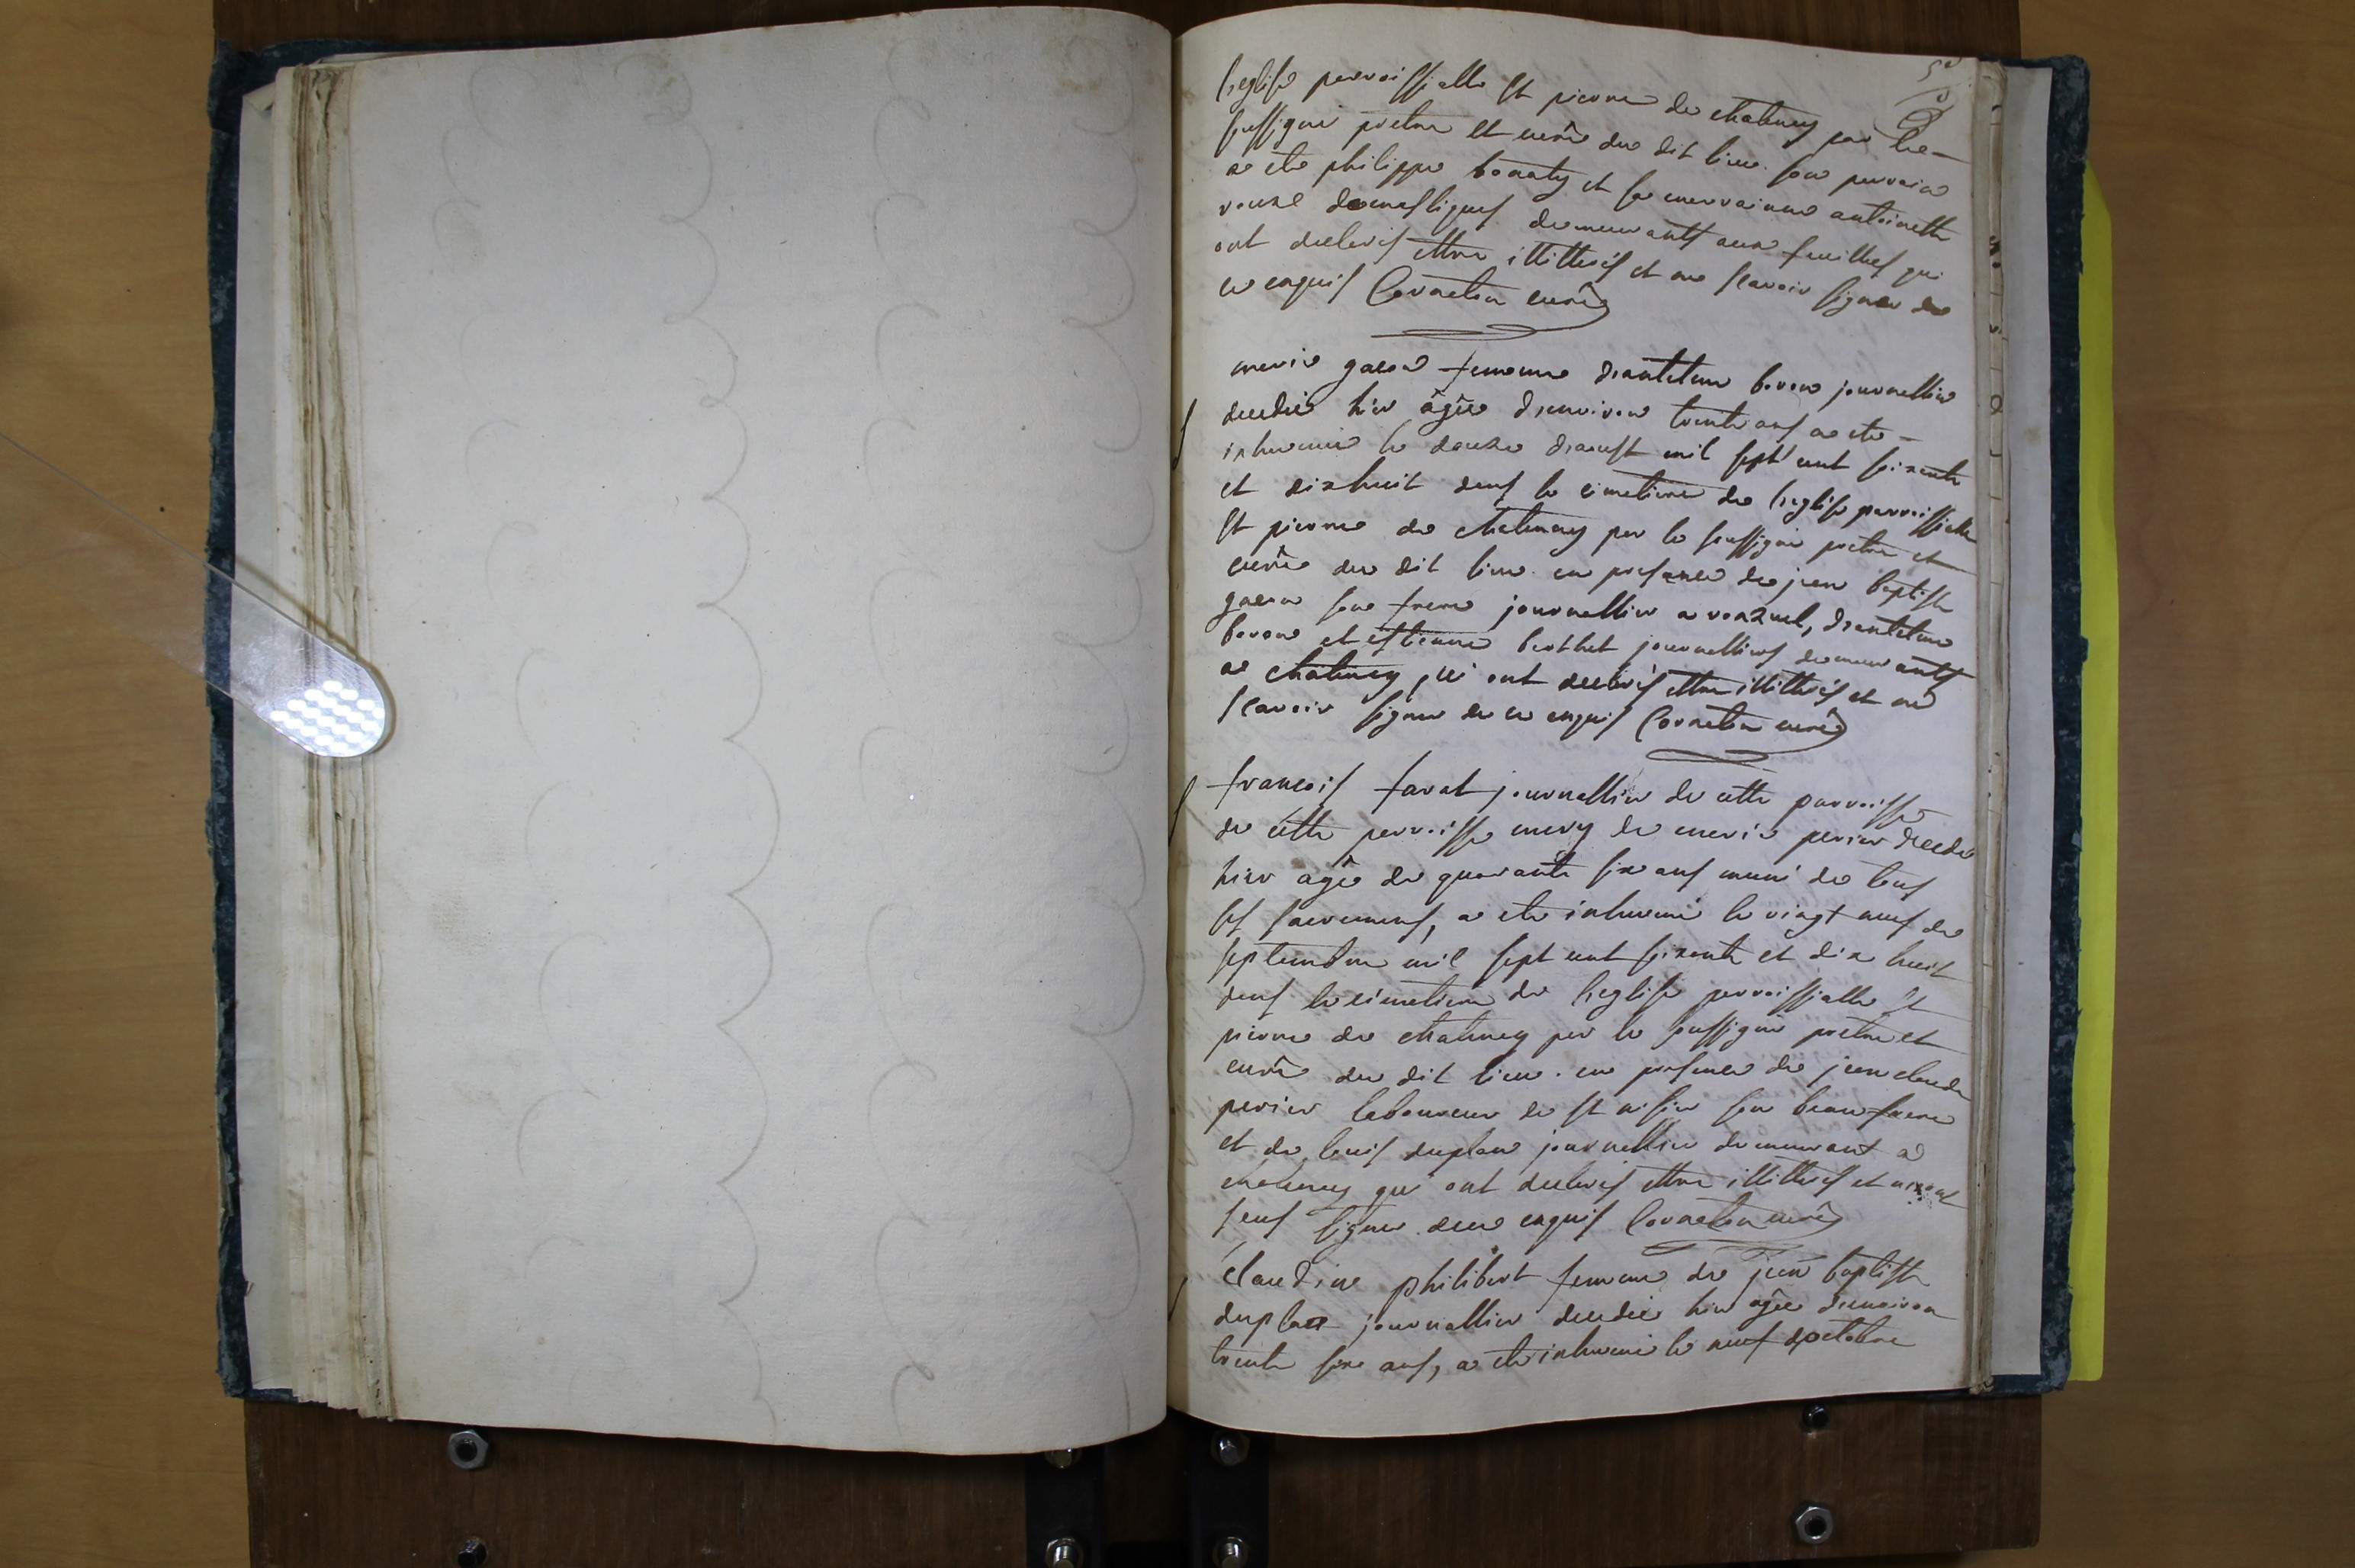 l'eglise parroissialle st pierre de chalmey par le
soussigné pretre et curé du dit lieu. son parrain
a ete philippe bonaty et sa marrainne antoinette
domestiques demeurants aux feuilles qui
ont declarés ettre illitterés et ne scavoir signer de
ce enquis Cornaton curé
marie gacon femme d'antelme baron journallier
decedée hier âgée d'environ trente ans a ete
inhumée le douze d'aoust mil sept cent soixante
et dixhuit dans le cimetiere de l'eglise parroissialle
st pierre de chalmey par le soussigné pretre et
curé du dit lieu en presence de jean baptiste
gacon son frere journallier a vonzuel, d'antelme
baron et estienne berthet journalliers demeurants
a chalmey qui ont declarés ettre illitterés et ne
scavoir signer de ce enquis Cornaton curé
francois favat journallier de cette parroisse
de cette parroisse mary de marie perier decedé
hier agé de quarante six ans muni de tous
les sacremens, a ete inhumé le vingt neuf de
septembre mil sept cent soixante et dix huit
dans le cimetiere de l'eglise parroissialle st
pierre de chalmey par le soussigné pretre et
curé du dit lieu. en presence de jean claude
perier laboureur de st nisier son beau frere
et de louis duplan journallier demeurant a
chalmey qui ont declarés ettre illitterés et
signer de ce enquis Cornaton curé
claudine philibert femme de jean baptiste
duplan journallier decedée hier agée d'environ
trente six ans, a ete inhumée le neuf d'octobre